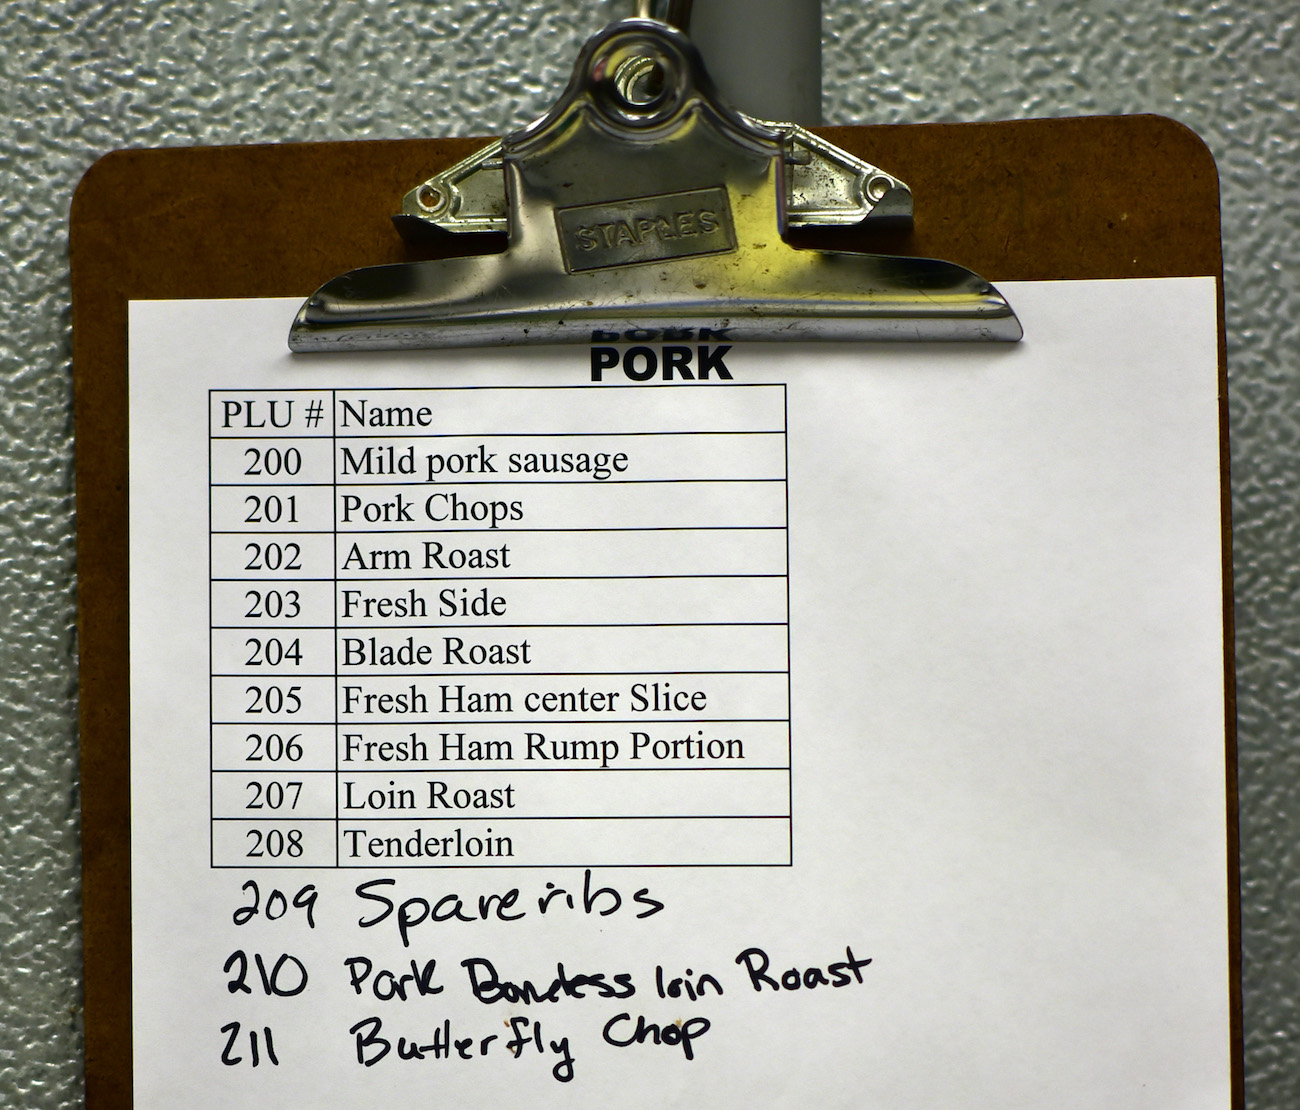 STAPLES
PORK
PLU # Name
200 Mild pork sausage
201 Pork Chops
202 Arm Roast
203 Fresh Side
204 Blade Roast
205 Fresh Ham center Slice
206 Fresh Ham Rump Portion
207 Loin Roast
208 Tenderloin
209 Spareribs
210 Pork Boneless loin Roast
211 Butterfly Chop